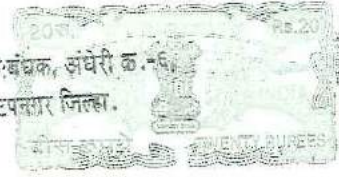 20रु. Rs.20
:बंधक, अंधेरी क्र.-६,
उपनगर जिल्हा.
बीस रुपये TWENTY RUPEES